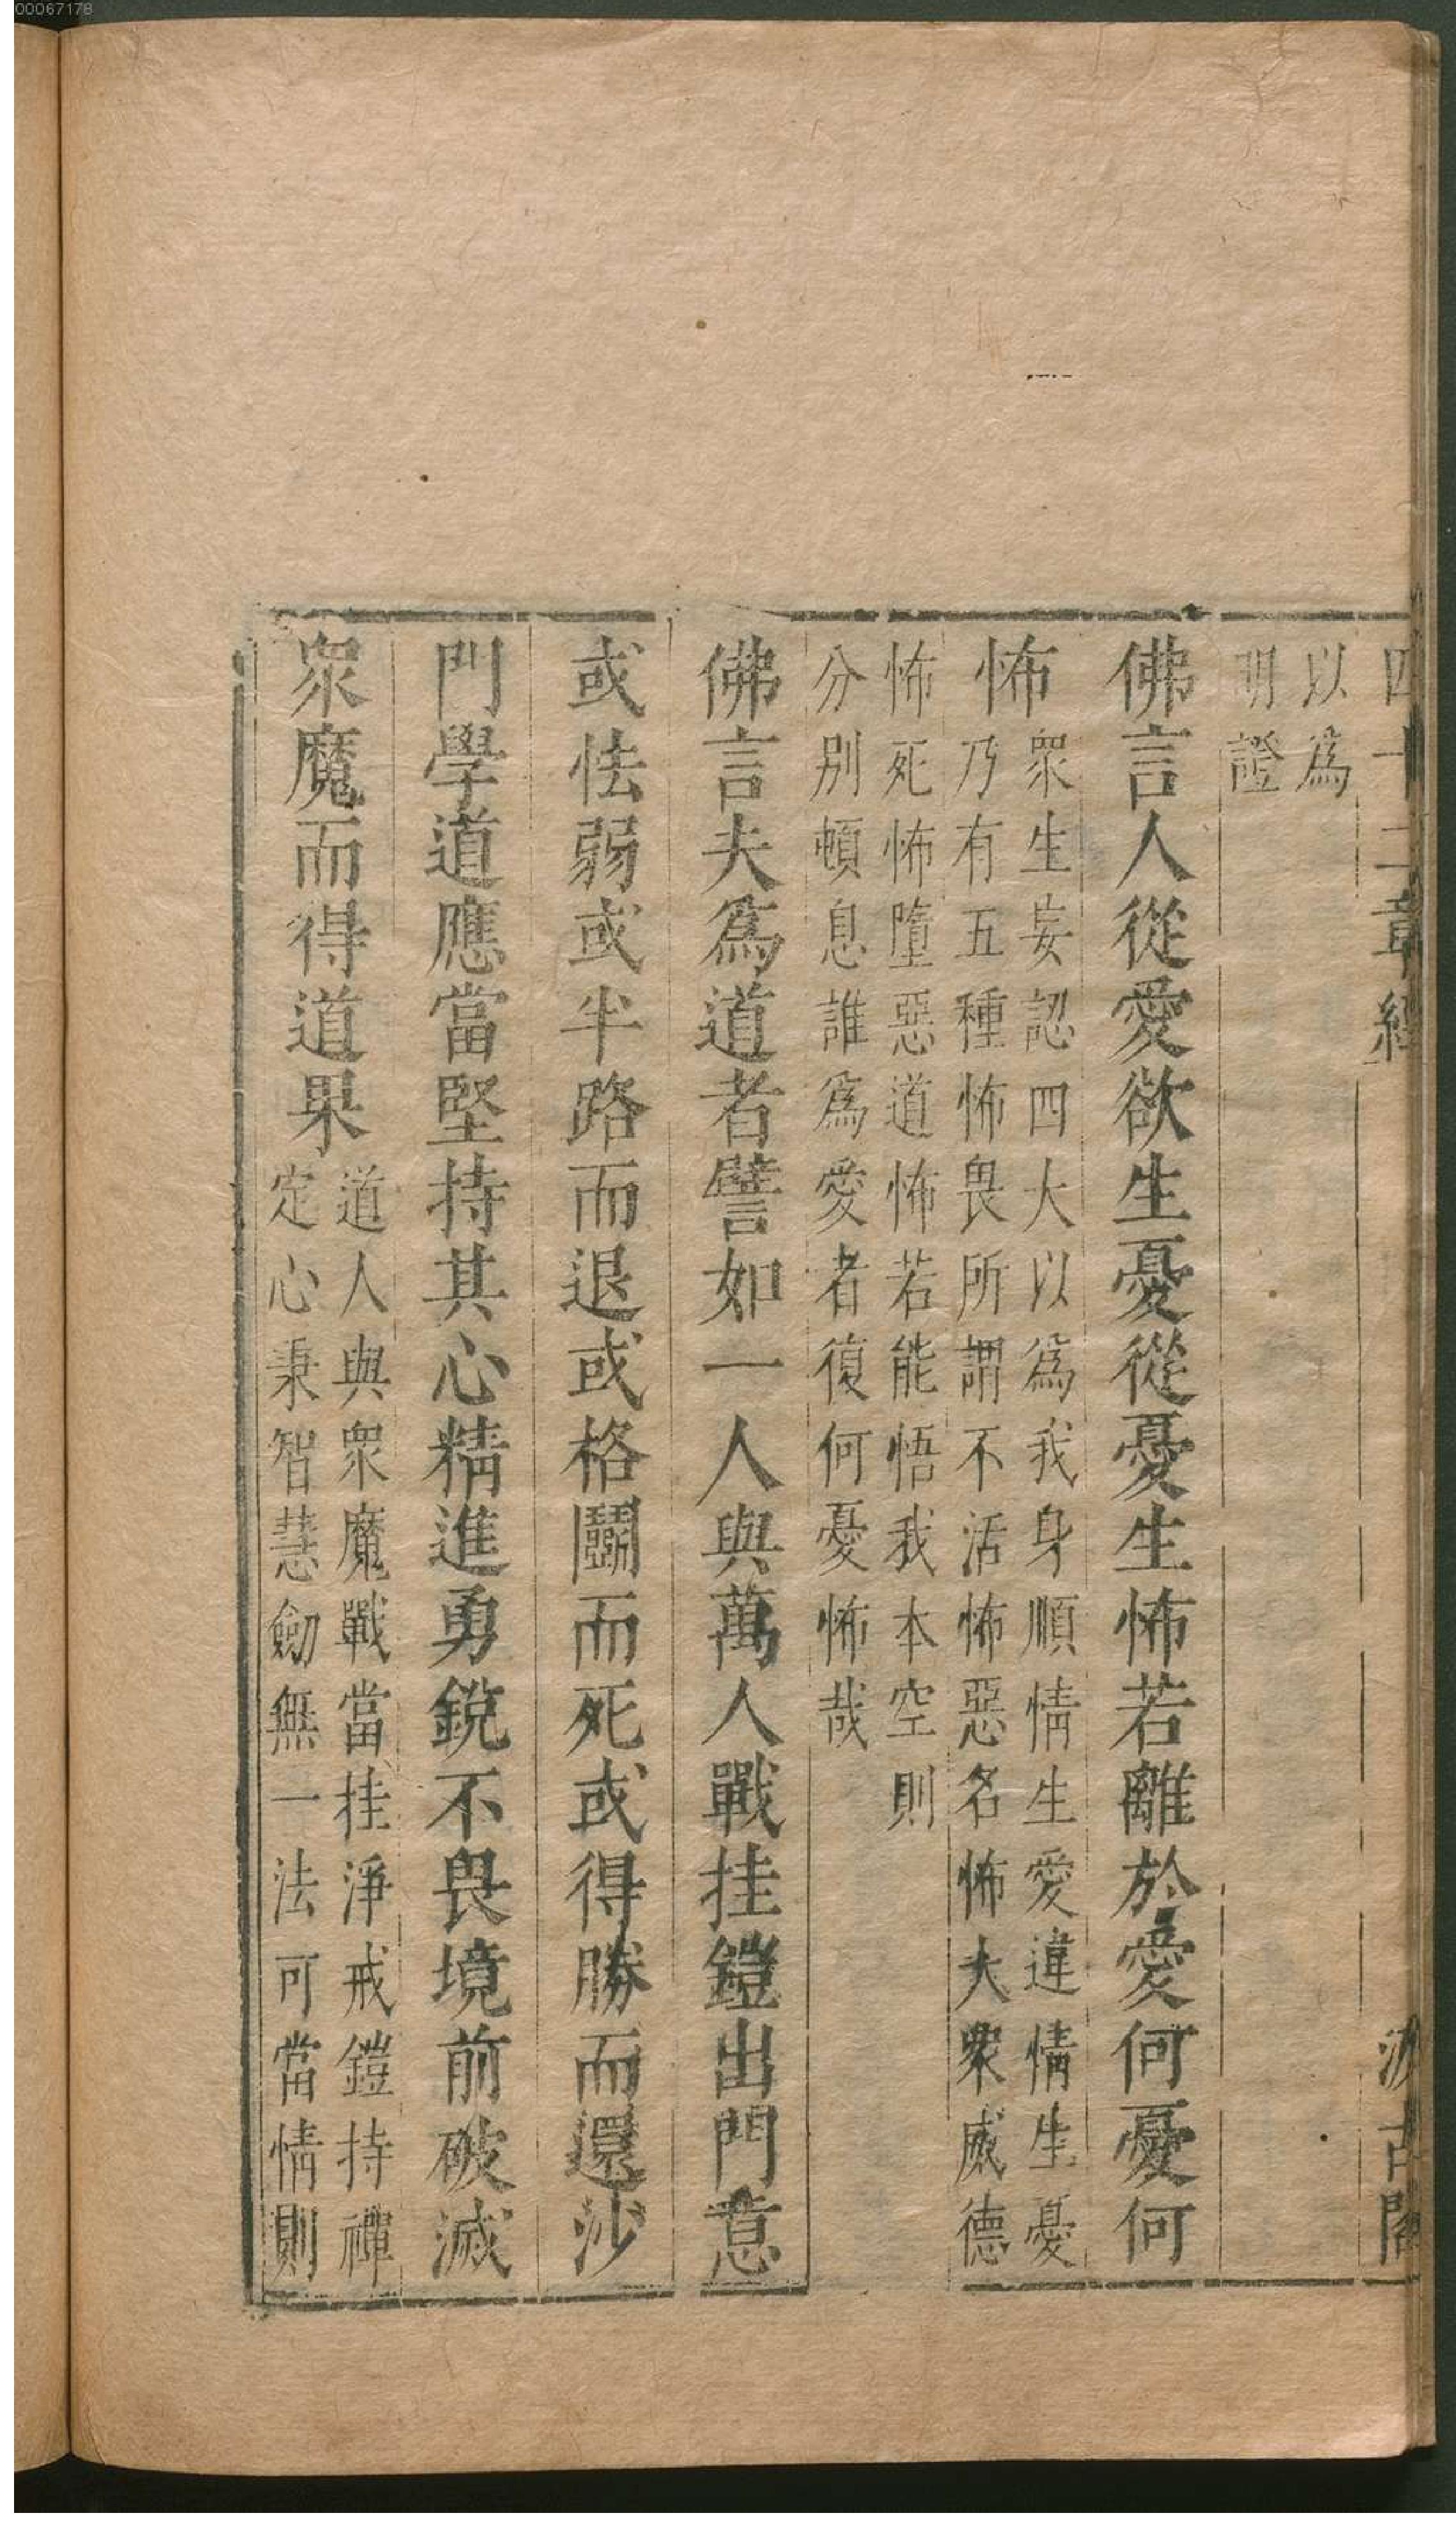 00067178
四十二章經 汲古閣
以為
明證
佛言人從愛欲生憂從憂生怖若離於愛何憂何
怖
眾生妄認四大以為我身順情生愛違情生憂
乃有五種怖畏所謂不活怖惡名怖大眾威德
怖死怖墮惡道怖若能悟我本空則
分別頓息誰為愛者復何憂怖哉
佛言夫為道者譬如一人與萬人戰挂鎧出門意
或怯弱或半路而退或格鬭而死或得勝而還沙
門學道應當堅持其心精進勇銳不畏前境破滅
眾魔而得道果
道人與眾魔戰當挂淨戒鎧持禪
定心秉智慧劒無一法可當情則